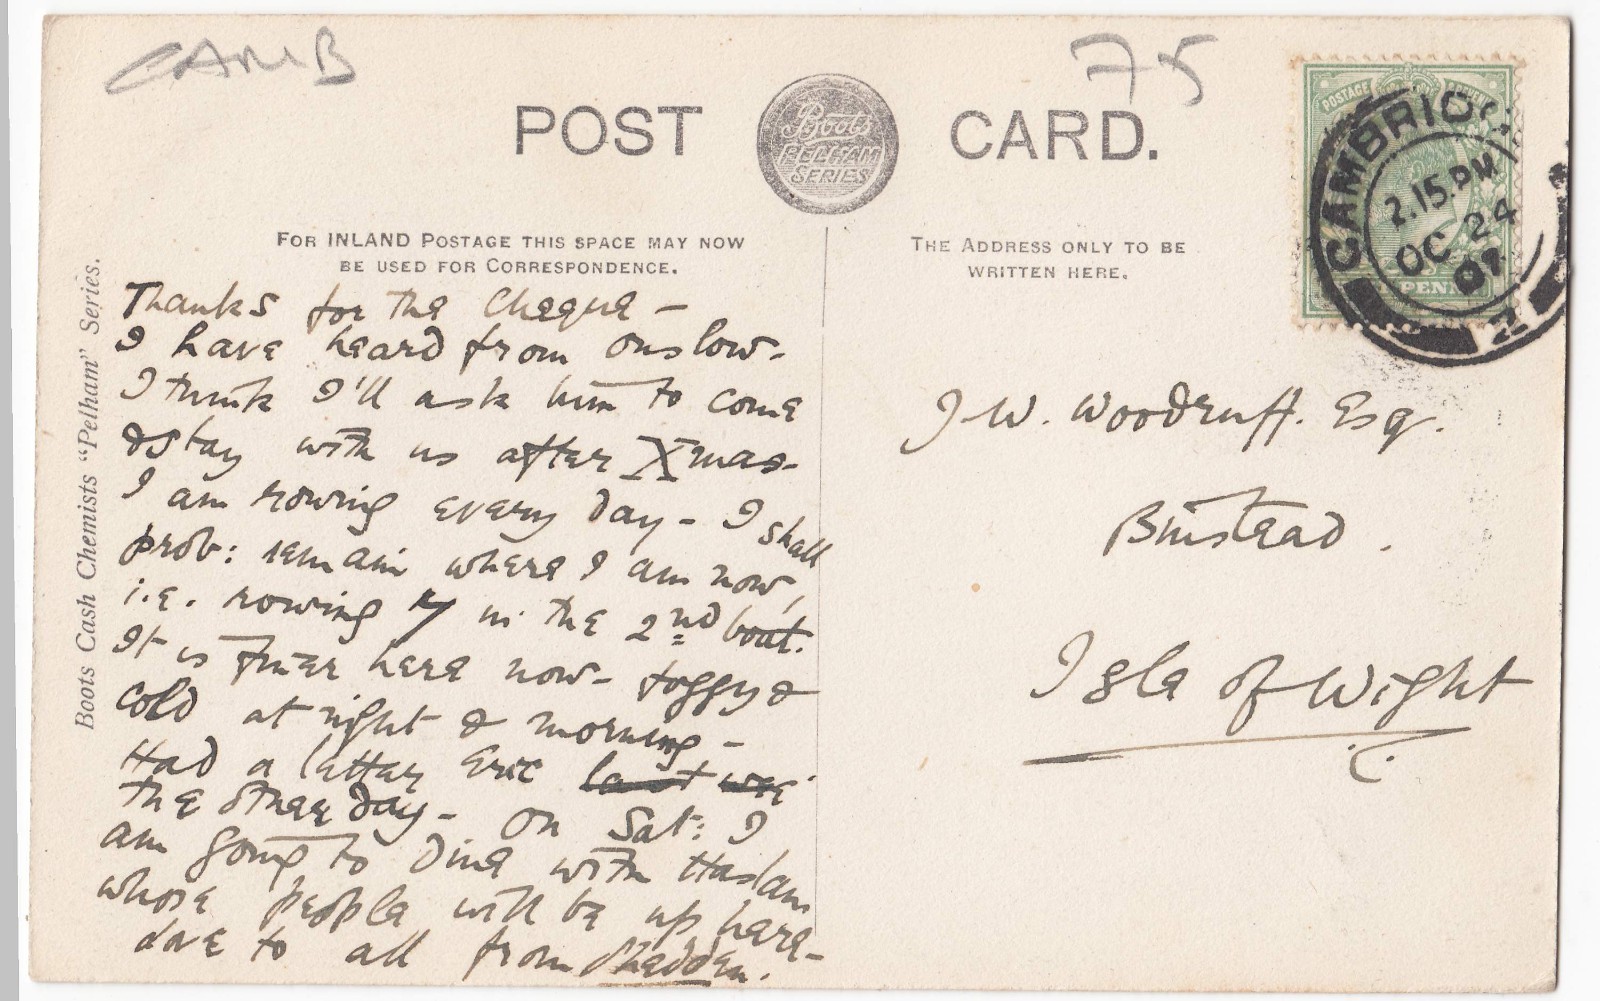 CAMB
75
POST CARD.
Boots
PELHAM
SERIES
FOR INLAND POSTAGE THIS SPACE MAY NOW
BE USED FOR CORRESPONDENCE.
THE ADDRESS ONLY TO BE
WRITTEN HERE.
Boots Cash Chemists "Pelham" Series.
POSTAGE
PENNY
CAMBRIDG
2.15.PM
OC 24
07
2
Thanks for the cheque –
I have heard from Onslow.
I think I'll ask him to come
& stay with us after Xmas –
I am rowing every day – I shall
prob: remain where I am now,
i.e. rowing 7 in the 2nd boat.
It is finer here now – foggy &
cold at night & morning –
Had a letter Eric last wee
the other day – On Sat: I
am going to dine with Haslam
whose people will be up here –
love to all from Shedden.
J. W. Woodruff. Esq.
Binstead.
Isle of Wight